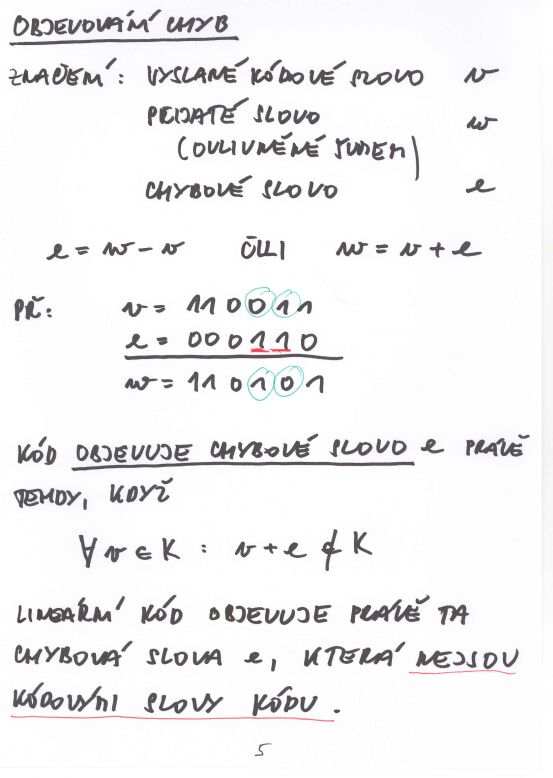 OBJEVOVÁNÍ CHYB
ZNAČENÍ: VYSLANÉ KÓDOVÉ SLOVO v
PŘIJATÉ SLOVO w
(OVLIVNĚNÉ ŠUMEM)
CHYBOVÉ SLOVO e
e = w - v ČILI w = v + e
PŘ: v = 110011
e = 000110
w = 110101
KÓD OBJEVUJE CHYBOVÉ SLOVO e PRÁVĚ
TEHDY, KDYŽ
∀ v ∈ K : v + e ∉ K
LINEÁRNÍ KÓD OBJEVUJE PRÁVĚ TA
CHYBOVÁ SLOVA e, KTERÁ NEJSOU
KÓDOVÝMI SLOVY KÓDU.
5